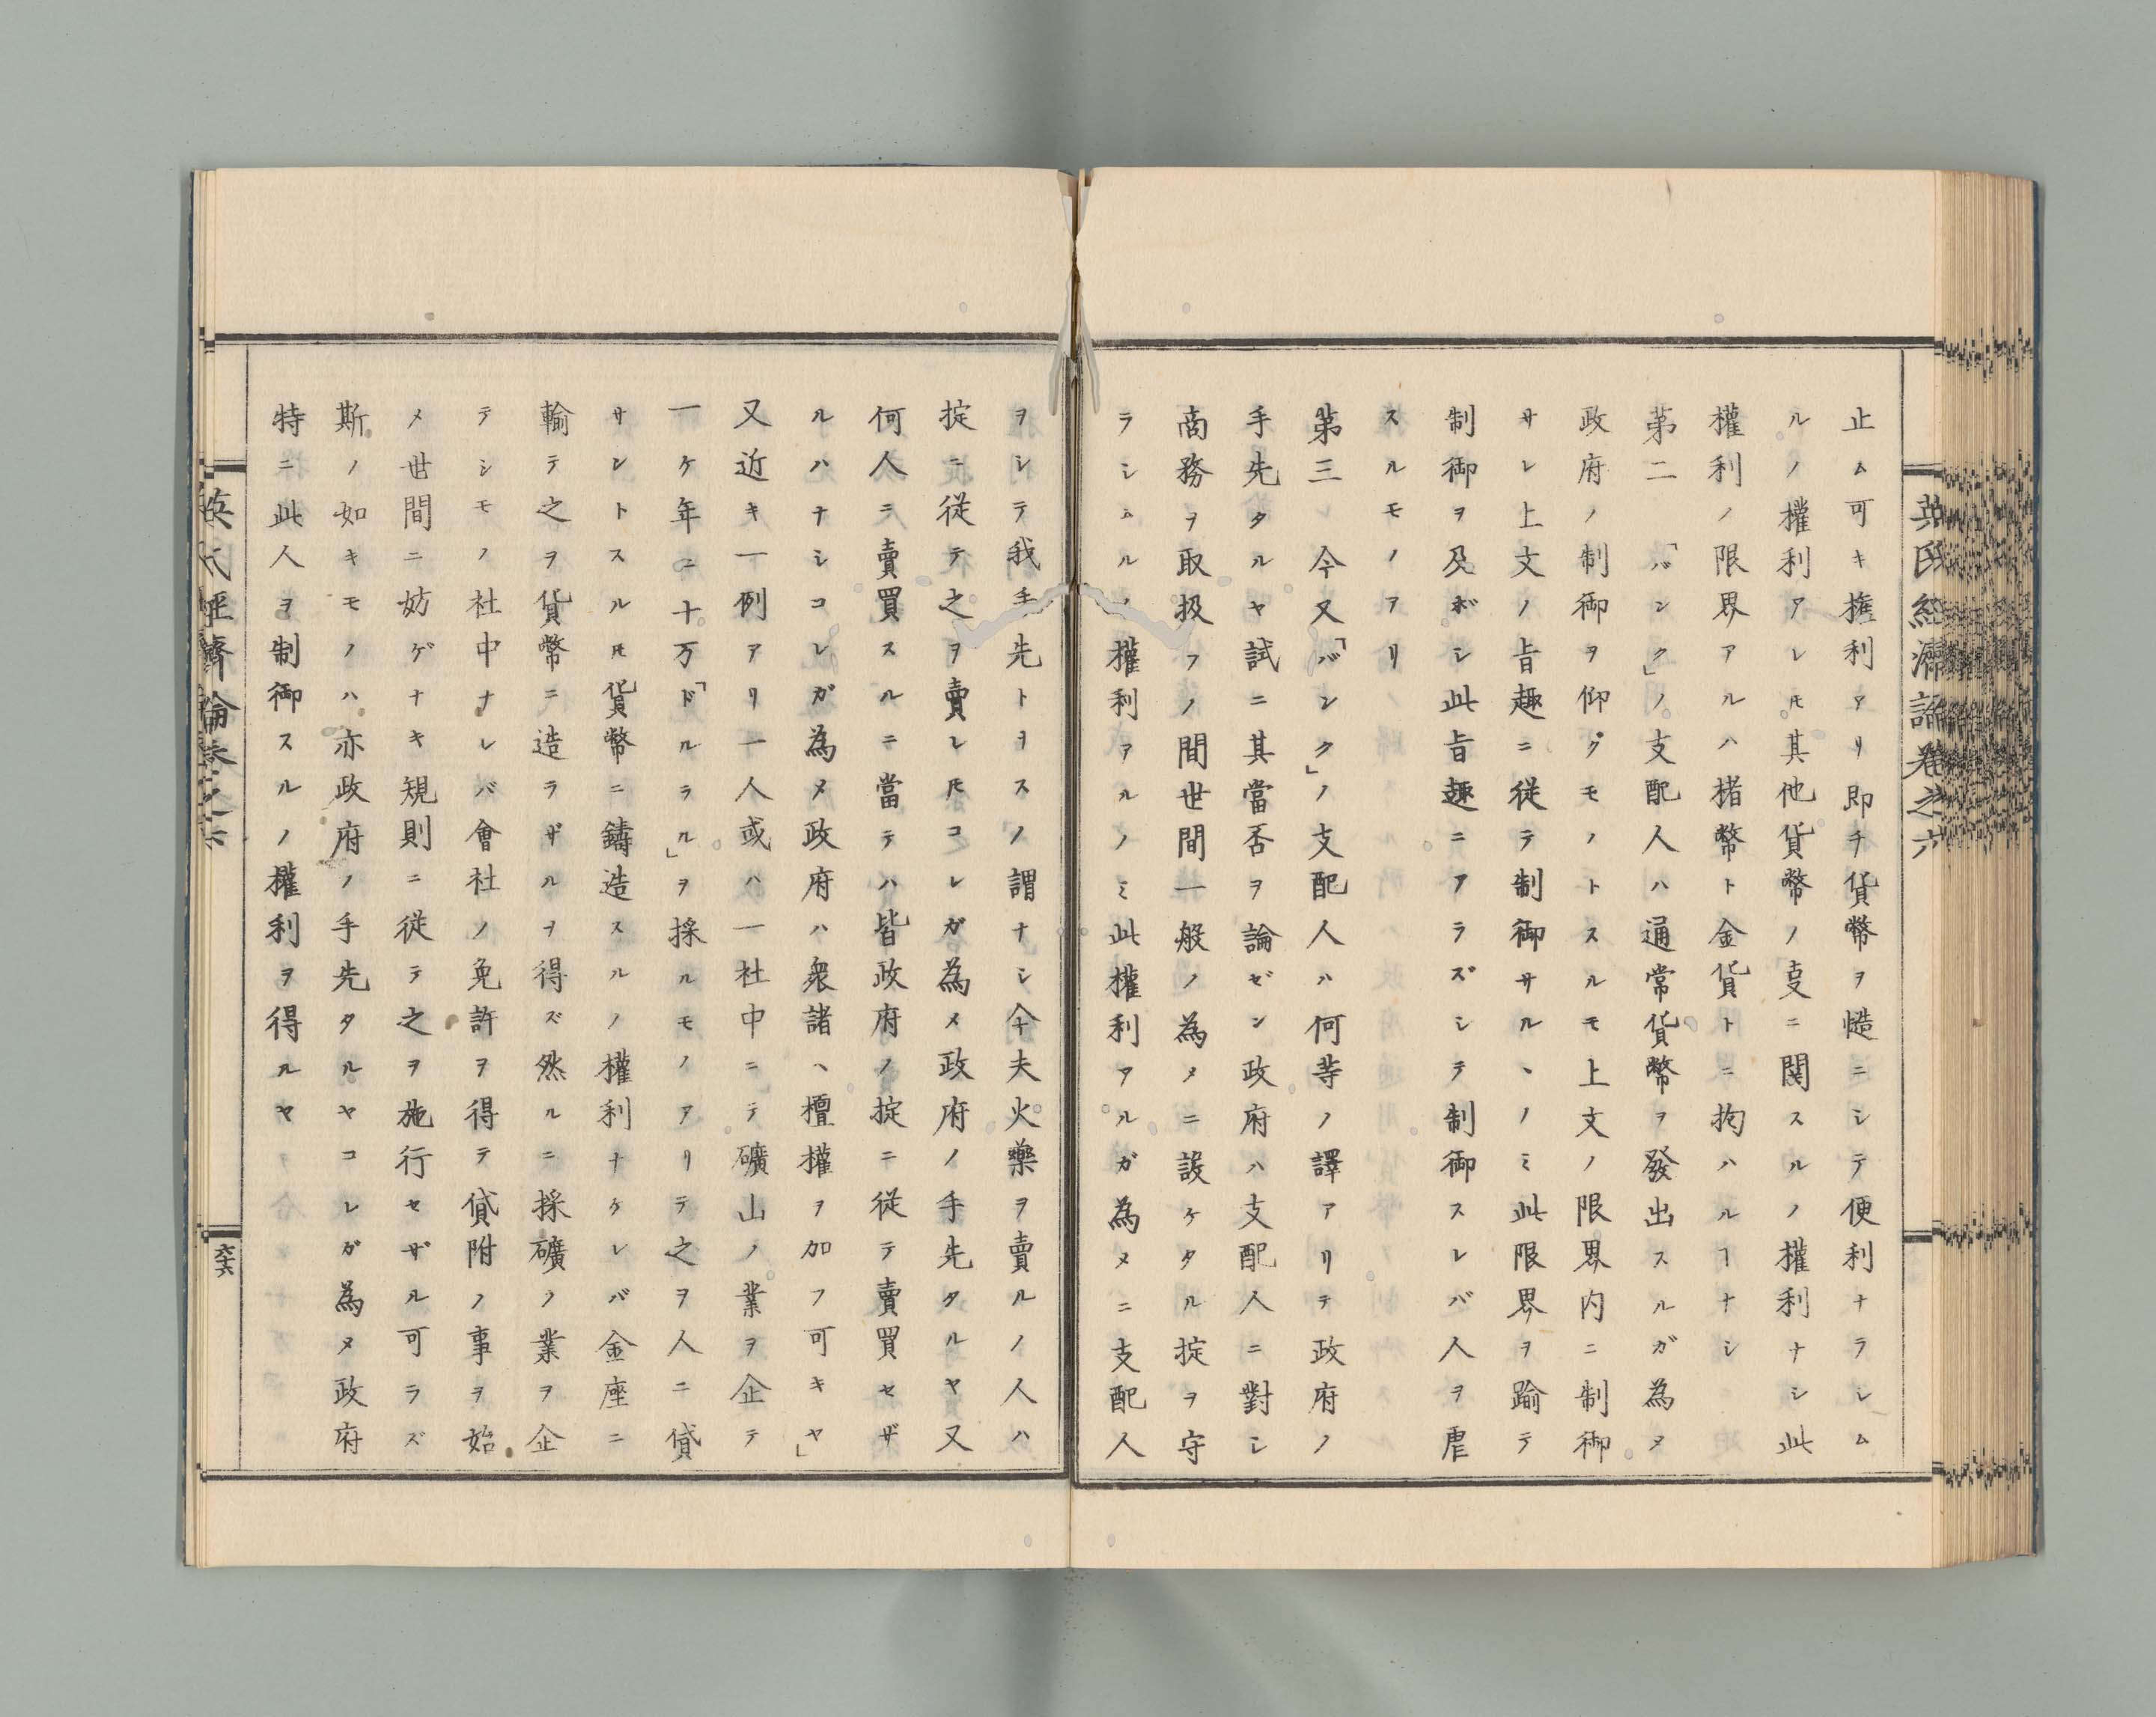 英氏經濟論卷之六
止ム可キ權利アリ即チ貨幣ヲ慥ニシテ便利ナラシム
ルノ權利アレ𪜈其他貨幣ノ叓ニ関スルノ權利ナシ此
權利ノ限界アルハ楮幣ト金貨トニ拘ハルヿナシ
第二 「バンク」ノ支配人ハ通常貨幣ヲ發出スルガ為メ
政府ノ制御ヲ仰グモノトスルモ上文ノ限界内ニ制御
サレ上文ノ旨趣ニ従テ制御サルヽノミ此限界ヲ踰テ
制御ヲ及ボシ此旨趣ニアラズシテ制御スレバ人ヲ虐
スルモノアリ
第三 今又「バンク」ノ支配人ハ何等ノ譯アリテ政府ノ
手先タルヤ試ニ其當否ヲ論ゼン政府ハ支配人ニ對シ
商務ヲ取扱フノ間世間一般ノ為メニ設ケタル掟ヲ守
ラシムルノ權利アルノミ此權利アルガ為メニ支配人
ヲシテ我手先トヲスノ謂ナシ今夫火藥ヲ賣ルノ人ハ
掟ニ従テ之ヲ賣レ𪜈コレガ為メ政府ノ手先タルヤ又
何人ニ賣買スルニ當テハ皆政府ノ掟ニ従テ賣買セザ
ルハナシコレガ為メ政府ハ衆諸ヽ檀權ヲ加フ可キヤ」
又近キ一例アリ一人或ハ一社中ニテ礦山ノ業ヲ企テ
一ケ年ニ十万「ドルラル」ヲ採ルモノアリテ之ヲ人ニ貸
サントスル𪜈貨幣ニ鑄造スルノ權利ナケレバ金座ニ
輸テ之ヲ貨幣ニ造ラザルヲ得ズ然ルニ採礦ノ業ヲ企
テシモノ社中ナレバ會社ノ免許ヲ得テ貸附ノ事ヲ始
メ世間ニ妨ゲナキ規則ニ従テ之ヲ施行セザル可ラズ
斯ノ如キモノハ亦政府ノ手先タルヤコレガ為メ政府
特ニ此人ヲ制御スルノ權利ヲ得ルヤ
英氏經濟論卷之六
六十六